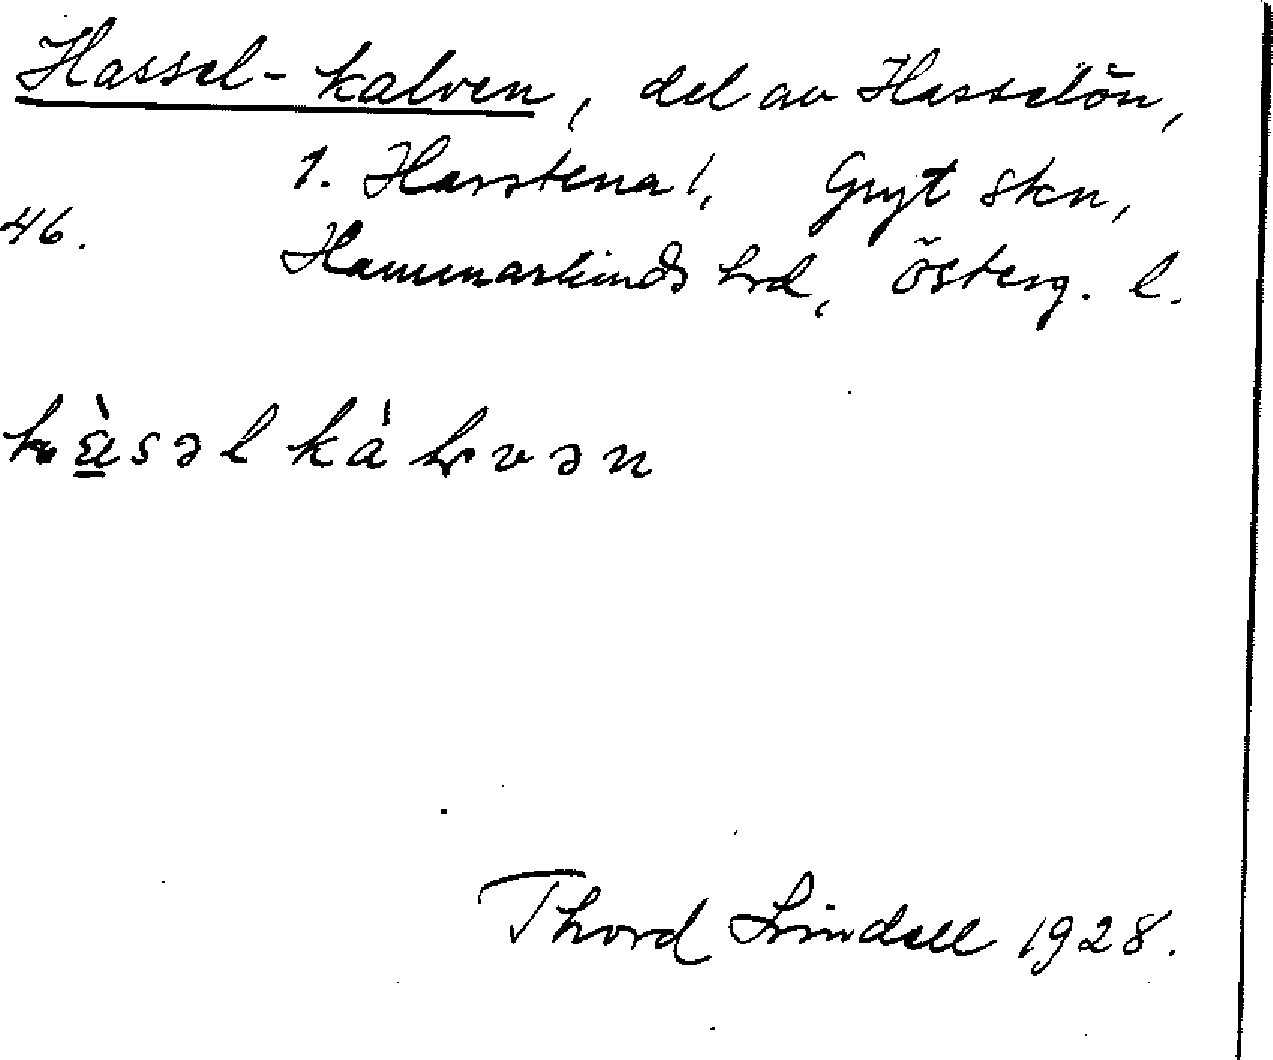 Hassel-kalven, del av Hasselön,
1. Harstena 1, Gryt skn,
46.
Hammarkinds hrd, Österg. l.
hàsəl kálvən
Thord Lindell 1928.